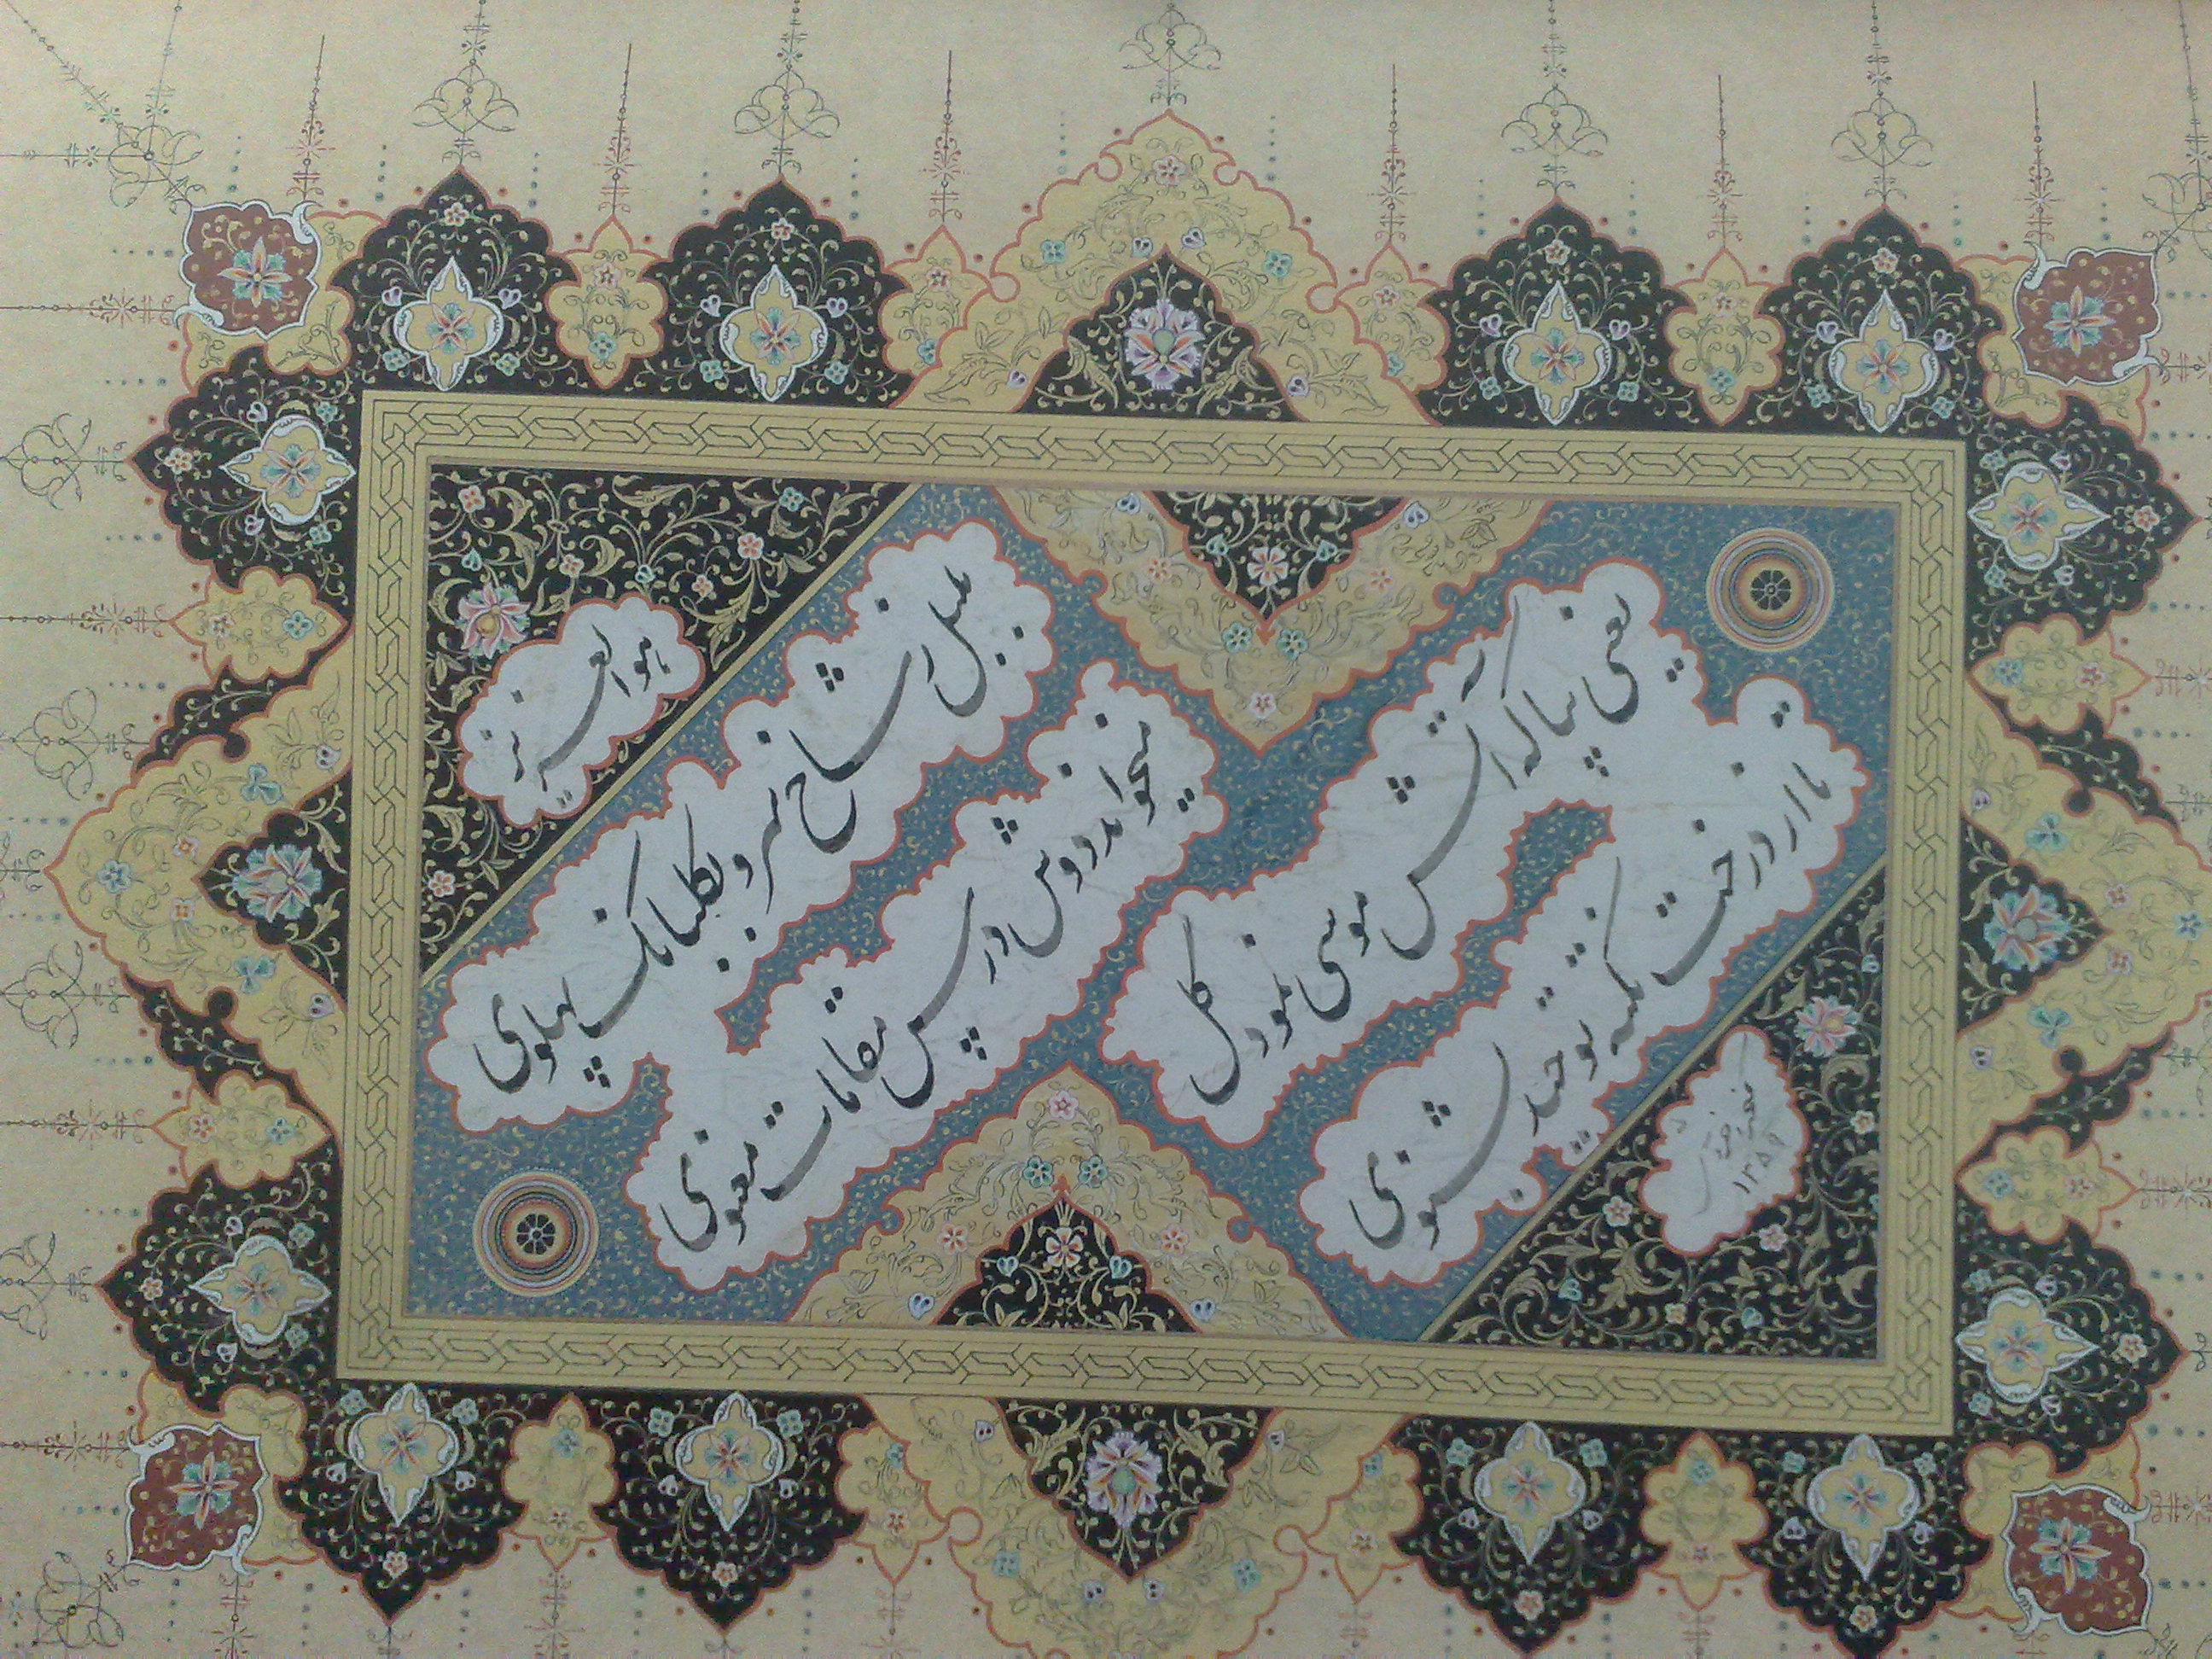 هوالعزیز
بلبل ز شاخ سرو بگلبانک پهلوی
میخواند دوش درس مقامات معنوی
یعنی بیا که آتش موسی نمود گل
تا از درخت نکته توحید بشنوی